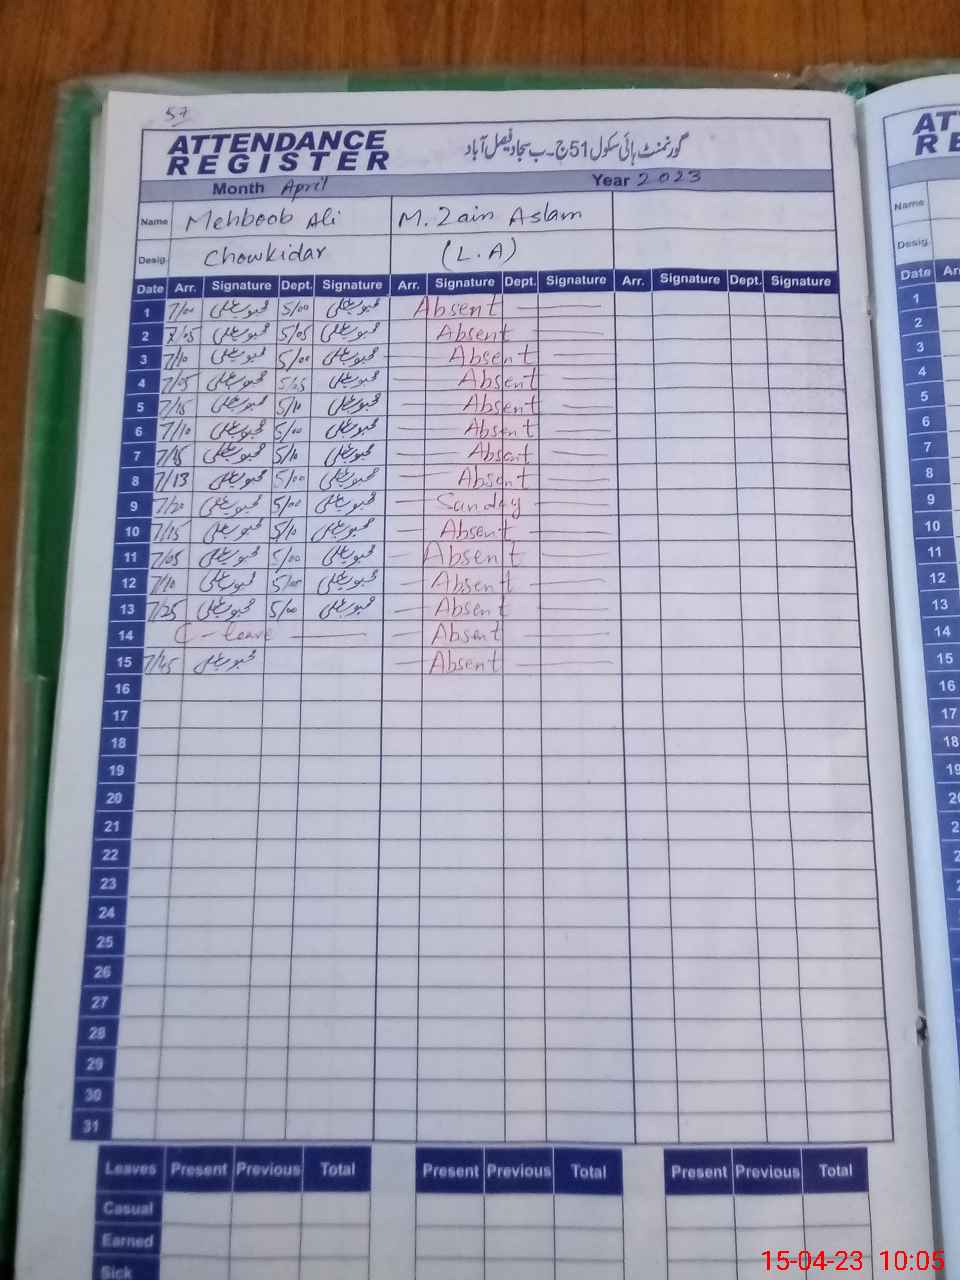 57
ATTENDANCE REGISTER
گورنمنٹ ہائی سکول 51 ج۔ب سجاد فیصل آباد
Month April Year 2023
Name Mehboob Ali M. Zain Aslam
Desig. Chowkidar (L.A)
Date Arr. Signature Dept. Signature Arr. Signature Dept. Signature Arr. Signature Dept. Signature
1 7/00 محبوب علی 5/00 محبوب علی Absent
2 7/05 محبوب علی 5/05 محبوب علی Absent
3 7/10 محبوب علی 5/00 محبوب علی Absent
4 7/05 محبوب علی 5/05 محبوب علی Absent
5 7/15 محبوب علی 5/10 محبوب علی Absent
6 7/10 محبوب علی 5/00 محبوب علی Absent
7 7/15 محبوب علی 5/10 محبوب علی Absent
8 7/13 محبوب علی 5/00 محبوب علی Absent
9 7/20 محبوب علی 5/00 محبوب علی Sunday
10 7/15 محبوب علی 5/10 محبوب علی Absent
11 7/05 محبوب علی 5/00 محبوب علی Absent
12 7/10 محبوب علی 5/00 محبوب علی Absent
13 7/25 محبوب علی 5/00 محبوب علی Absent
14 C - leave Absent
15 7/45 محبوب علی Absent
16
17
18
19
20
21
22
23
24
25
26
27
28
29
30
31
Leaves Present Previous Total Present Previous Total Present Previous Total
Casual
Earned
Sick
Name
Desig.
Date
1
2
3
4
5
6
7
8
9
10
11
12
13
14
15
16
17
18
19
15-04-23 10:05